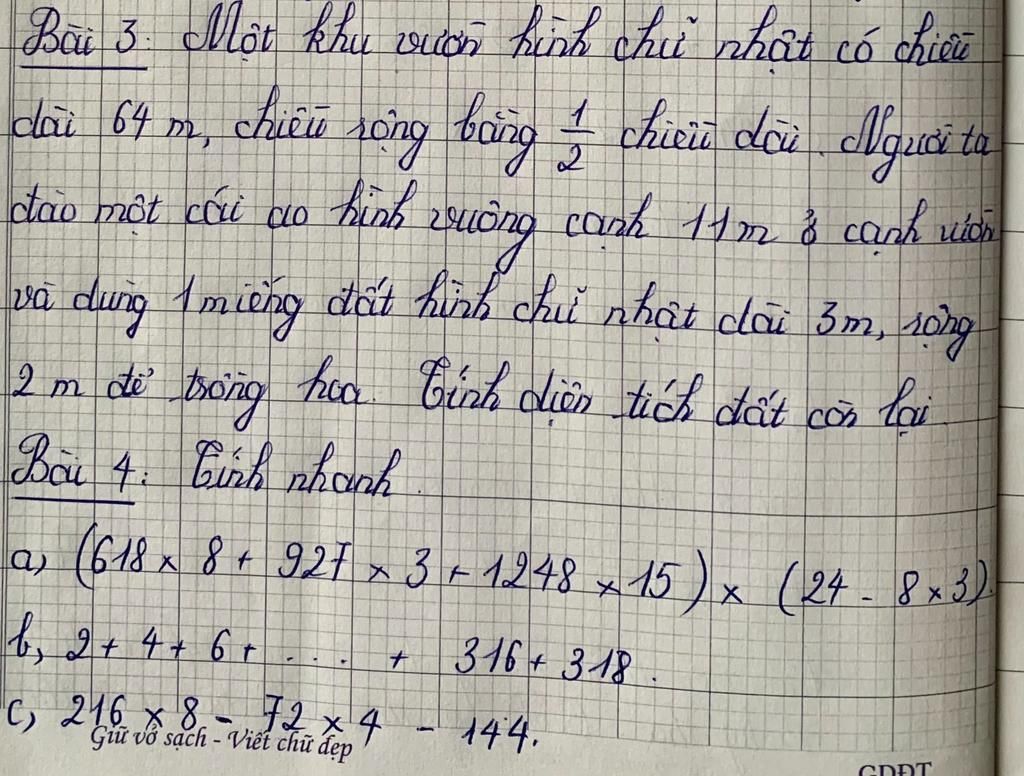 Bài 3: Một khu vườn hình chữ nhật có chiều
dài 64 m, chiều rộng bằng 1/2 chiều dài. Người ta
đào một cái ao hình vuông cạnh 11m ở cạnh vườn
và dùng 1 miếng đất hình chữ nhật dài 3m, rộng
2 m để trồng hoa. Tính diện tích đất còn lại
Bài 4: Tính nhanh.
a, (618 x 8 + 927 x 3 + 1248 x 15) x (24 - 8 x 3)
b, 2 + 4 + 6 + .... + 316 + 318.
c, 216 x 8 - 72 x 4 - 144.
Giữ vở sạch - Viết chữ đẹp
GDĐT